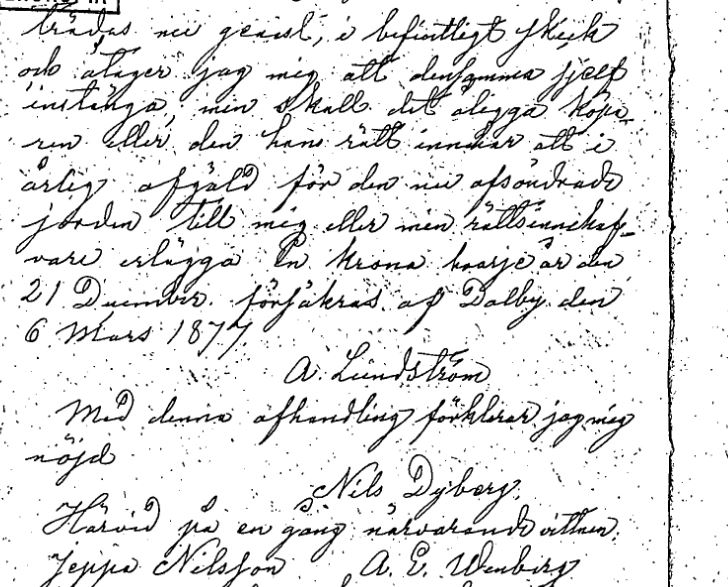 trädas nu genast, i befintligt skick
och åtager jag mig att densamma sjelf
instänga, men skall det åligga köpa-
ren eller den hans rätt innehar att i
årlig afgäld för den nu afsöndrade
jorden till mig eller min rättsinnehaf-
vare erlägga En krona hvarje år den
21 December. försäkras af Dalby den
6 Mars 1877
A. Lundström
Med denna afhandling förklarar jag mig
nöjd
Nils Dyberg.
Härvid på en gång närvarande vittnen.
Jeppa Nilsson A. E. Wenberg